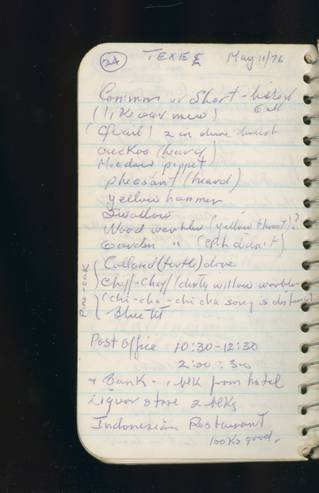 24 TEXEL May 11/76
Common or Short-billed
Gull
(like our mew)
(Quail) 2 in dune brush
cuckoo (heard)
Meadow pippet
pheasant (heard)
yellow hammer
Swallow
Wood warbler (yellow throat)?
Garden " (
Collared (turtle) dove
Chiff-Chaff (dirty willow warbler
(chi-cha-chi cha song is
Blue Tit
Post Office 10:30-12:30
2:00 :
Bank - 1 blk from hotel
Liquor store 2 blks
Indonesian Restaurant
looks good.